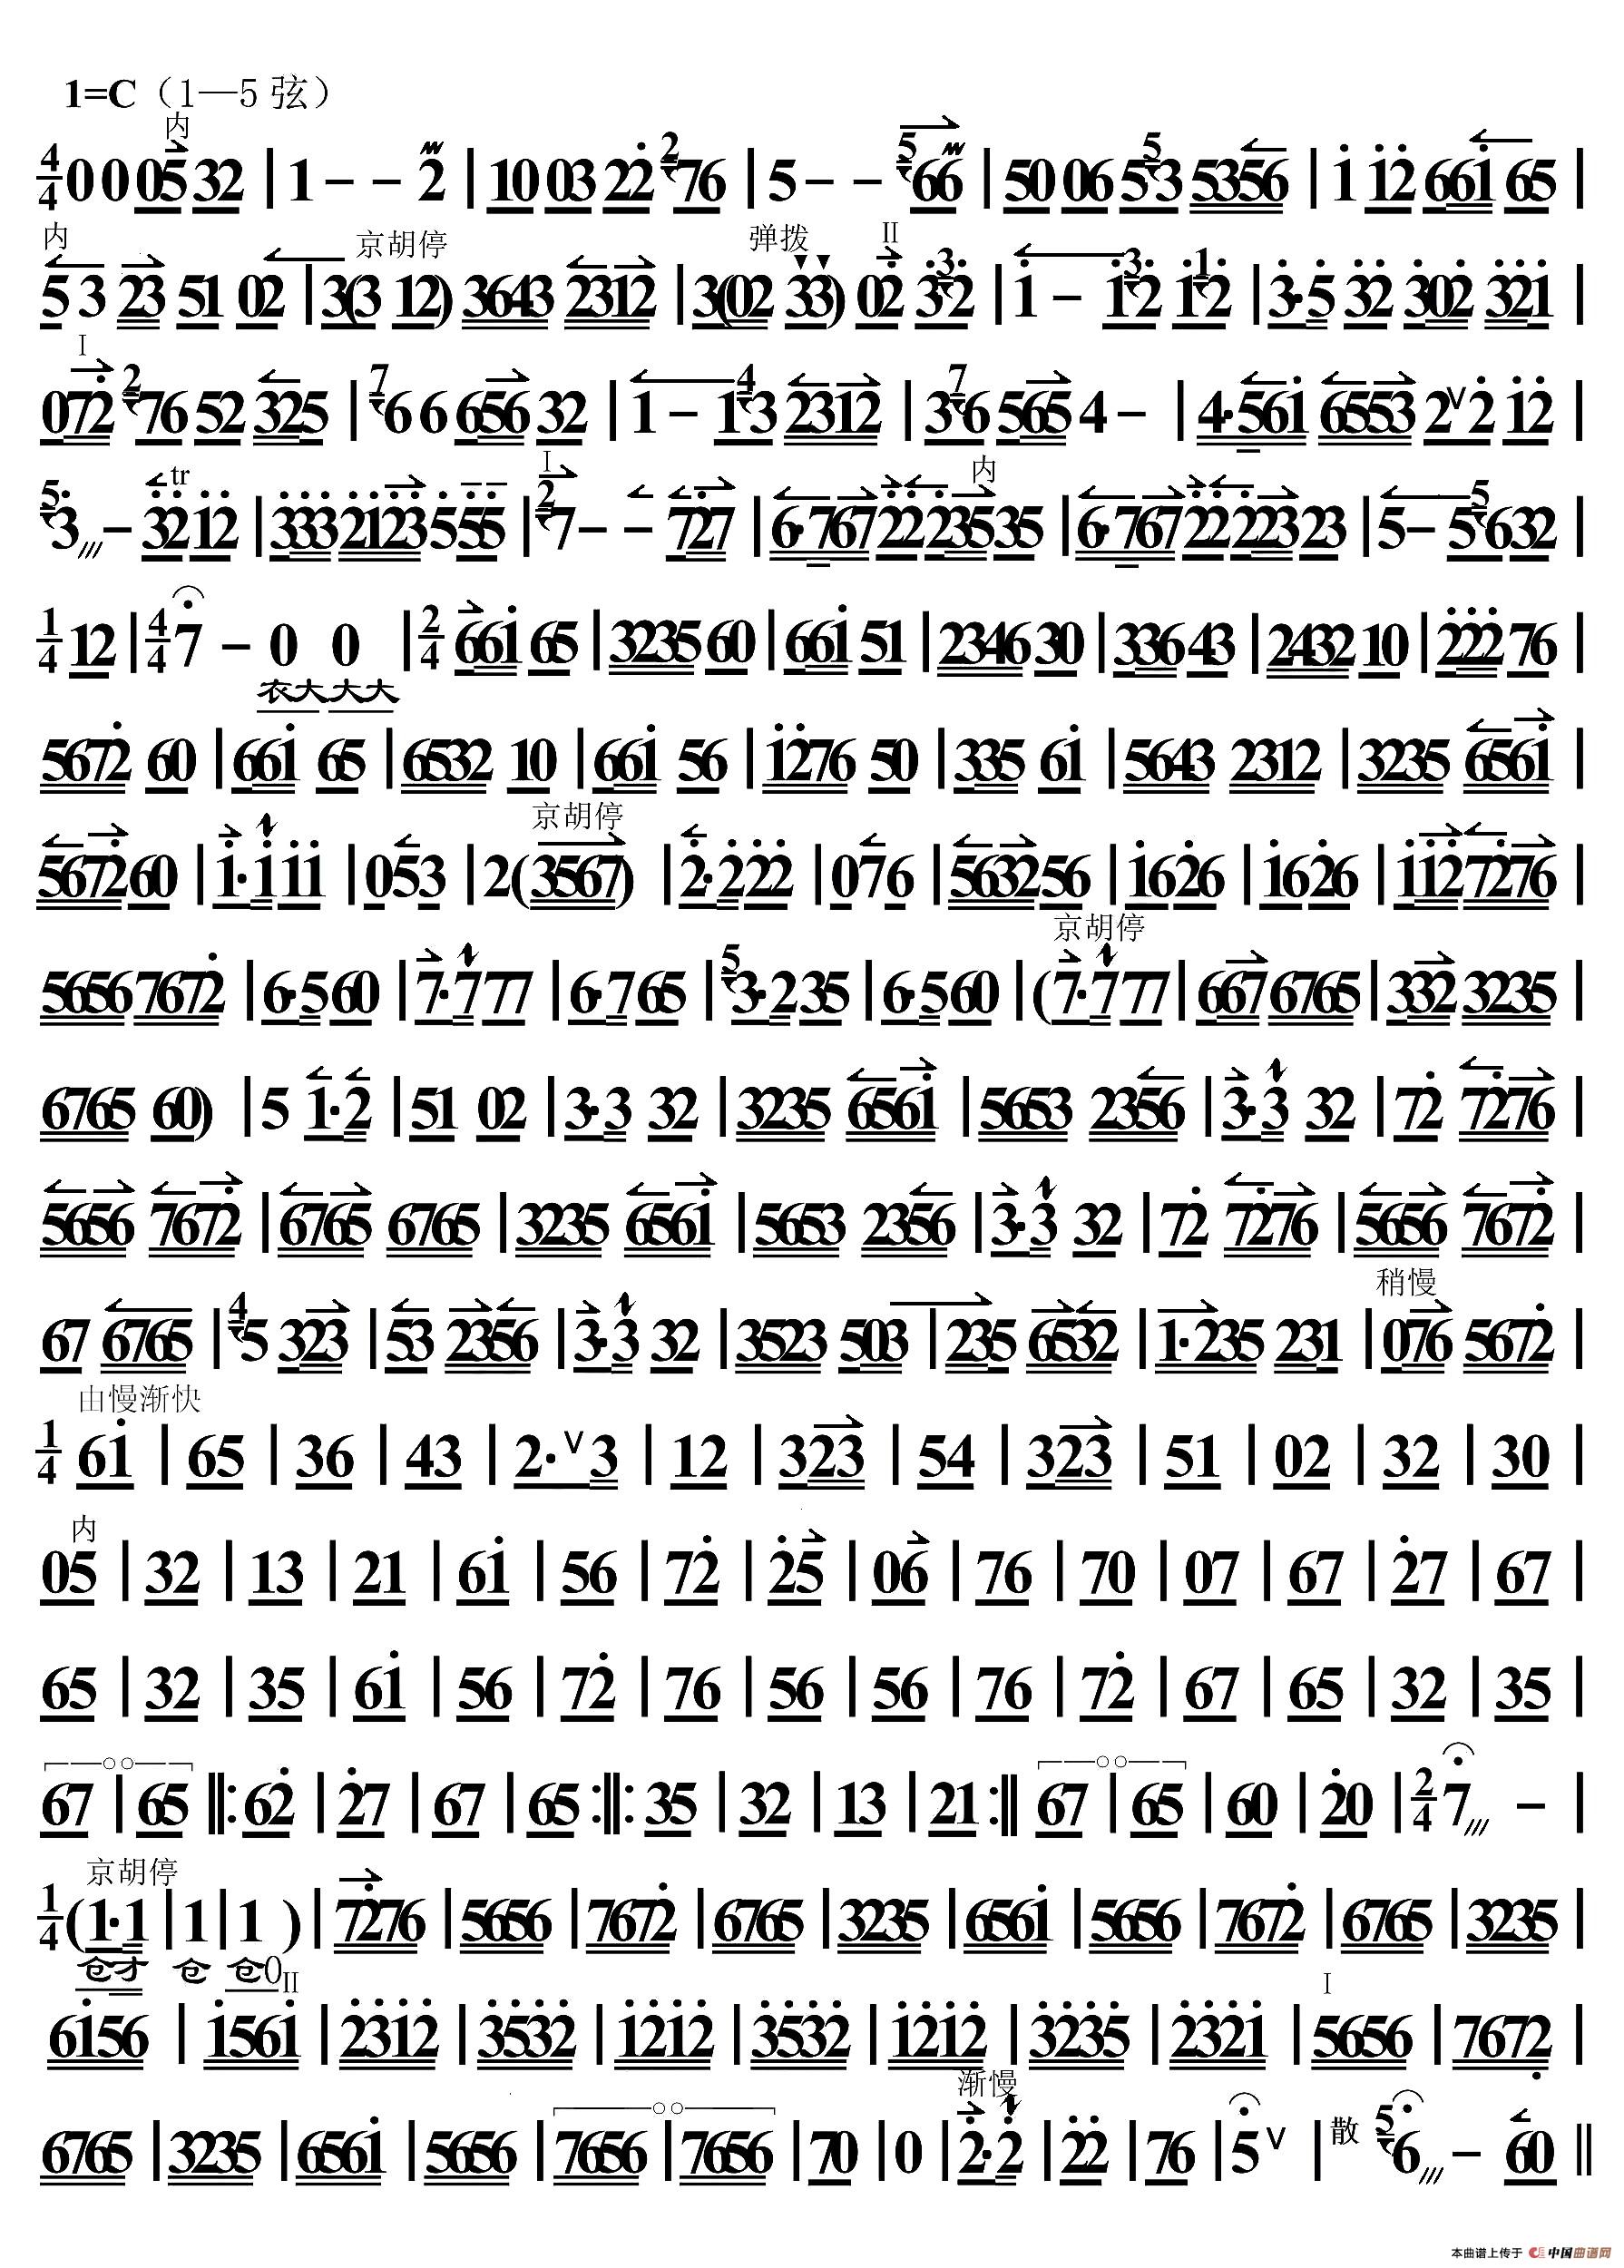 1=C（1—5 弦）
内
4/4 0 0 05 32 | 1 - - 2 | 10 03 22̇ 76 | 5 - - 66 | 50 06 53 5356 | i i2̇ 66i 65 |
内 京胡停 弹拨 II
5 3 23 51 02 | 3(3 12) 3643 2312 | 3(02 33) 02̇ 3̇2̇ | i - i2̇ i2̇ | 3̇·5̇ 3̇2̇ 3̇02̇ 3̇2̇i |
I
072̇ 76 52 325 | 6 6 656 32 | 1 - 13 2312 | 36 565 4 - | 4·56i 6553 2 V 2̇ i2̇ |
tr I 内
3̇ - 3̇2̇ i2̇ | 3̇3̇3̇ 2̇i2̇3̇ 5̇5̇5̇ | 7 - - 72̇7 | 6·767 2̇2̇ 2̇35 35 | 6·767 2̇2̇ 2̇23 23 | 5 - 56 32 |
1/4 12 | 4/4 7 - 0 0 | 2/4 66i 65 | 3235 60 | 66i 51 | 2346 30 | 336 43 | 2432 10 | 2̇2̇2̇ 76 |
衣大大大
5672̇ 60 | 66i 65 | 6532 10 | 66i 56 | i2̇76 50 | 335 6i | 5643 2312 | 3235 656i |
京胡停
5672̇ 60 | i·i ii | 053 | 2(3567) | 2̇·2̇ 2̇2̇ | 076 | 5632 56 | i6 2̇6 | i6 2̇6 | ii2̇ 72̇76 |
京胡停
5656 7672̇ | 6·5 60 | 7·7 77 | 6·7 65 | 3·2 35 | 6·5 60 | (7·7 77 | 667 6765 | 332 3235 |
6765 60) | 5 1·2 | 51 02 | 3·3 32 | 3235 656i | 5653 2356 | 3·3 32 | 72̇ 72̇76 |
5656 7672̇ | 6765 6765 | 3235 656i | 5653 2356 | 3·3 32 | 72̇ 72̇76 | 5656 7672̇ |
稍慢
67 6765 | 5 323 | 53 2356 | 3·3 32 | 3523 503 | 235 6532 | 1·235 231 | 076 5672̇ |
由慢渐快
1/4 6i | 65 | 36 | 43 | 2· V 3 | 12 | 323 | 54 | 323 | 51 | 02 | 32 | 30 |
内
05 | 32 | 13 | 21 | 6i | 56 | 72̇ | 2̇5 | 06 | 76 | 70 | 07 | 67 | 2̇7 | 67 |
65 | 32 | 35 | 6i | 56 | 72̇ | 76 | 56 | 56 | 76 | 72̇ | 67 | 65 | 32 | 35 |
67 | 65 ‖: 62̇ | 2̇7 | 67 | 65 :‖: 35 | 32 | 13 | 21 :‖ 67 | 65 | 60 | 2̇0 | 2/4 7 - |
京胡停
1/4 (1·1 | 1 | 1 ) | 72̇76 | 5656 | 7672̇ | 6765 | 3235 | 656i | 5656 | 7672̇ | 6765 | 3235 |
仓才 仓 仓0 II I
6i56 | i56i | 2̇3̇i2̇ | 3̇5̇3̇2̇ | i2̇i2̇ | 3̇5̇3̇2̇ | i2̇i2̇ | 3̇2̇3̇5̇ | 2̇3̇2̇i | 5656 | 7672̣ |
渐慢
6765 | 3235 | 656i | 5656 | 7656 | 7656 | 70 | 0 | 2̇·2̇ | 2̇2̇ | 76 | 5 V | 散 6 - 60 ‖
本曲谱上传于 中国曲谱网